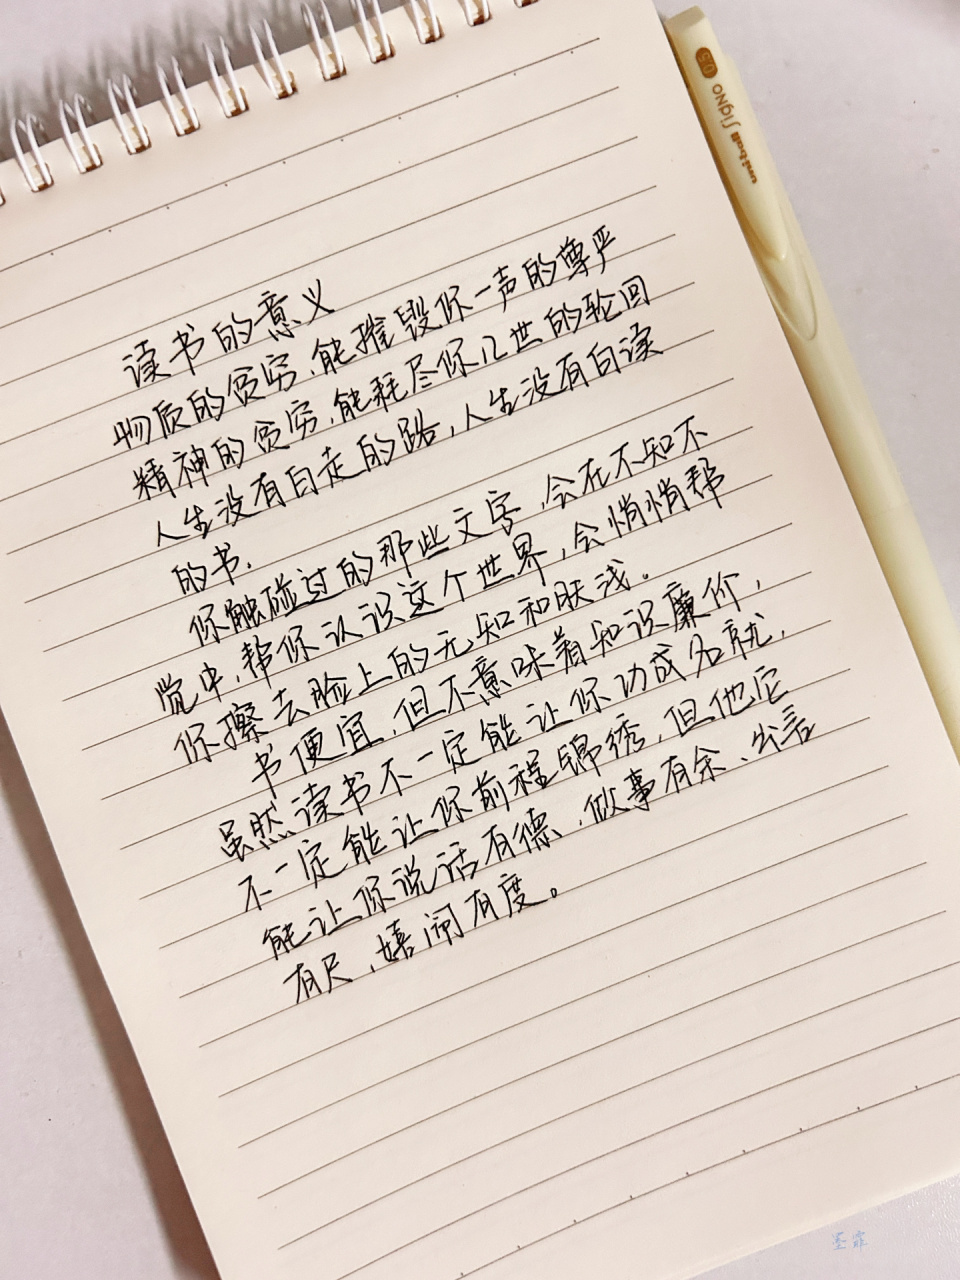 读书的意义
物质的贫穷,能摧毁你一声的尊严
精神的贫穷,能耗尽你几世的轮回
人生没有白走的路,人生没有白读
的书.
你触碰过的那些文字,会在不知不
觉中,帮你认识这个世界,会悄悄帮
你擦去脸上的无知和肤浅。
书便宜,但不意味着知识廉价,
虽然读书不一定能让你功成名就,
不一定能让你前程锦绣,但他它
能让你说话有德,做事有余、出言
有尺,嬉闹有度。
uniball SigNo 0.5
墨霏